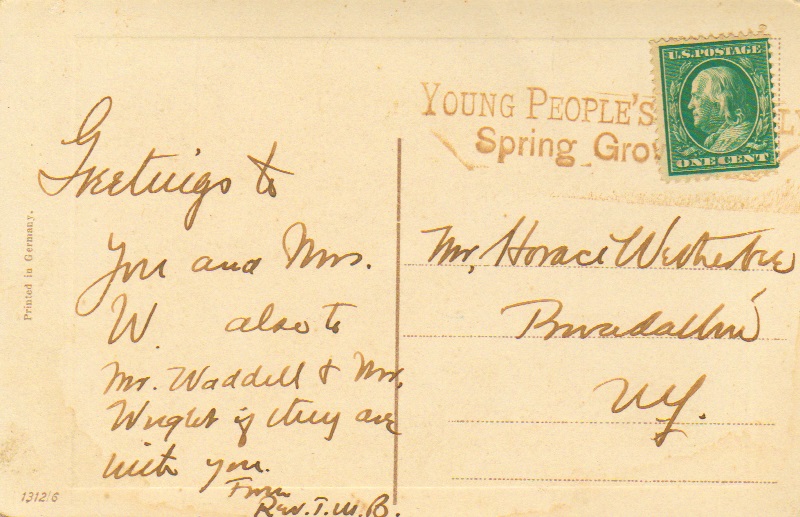 U.S. POSTAGE
ONE CENT
YOUNG PEOPLE'S
Spring Gro
Greetings to
you and Mrs.
W. also to
Mr. Waddell & Mr.
Wright if they are
with you.
From
Rev. T. W. B.
Mr. Horace Wetherbee
Broadalbin
N.Y.
Printed in Germany.
13126